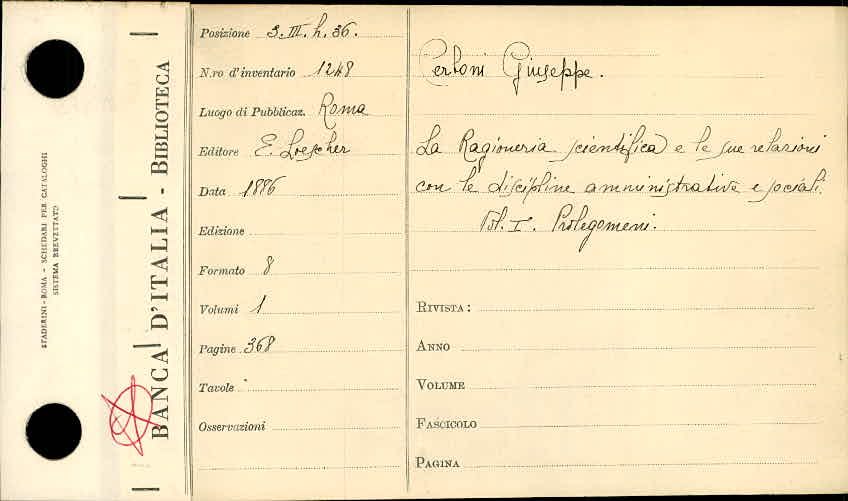 STADERINI - ROMA - SCHEDARI PER CATALOGHI
SISTEMA BREVETTATO
BANCA D'ITALIA - BIBLIOTECA
Posizione 3. III. h. 36.
N.ro d'inventario 1248
Luogo di Pubblicaz. Roma
Editore E. Loescher
Data 1886
Edizione
Formato 8
Volumi 1
Pagine 368
Tavole
Osservazioni
Cerboni Giuseppe.
La Ragioneria scientifica e le sue relazioni
con le discipline amministrative e sociali.
Vol. I. Prolegomeni.
RIVISTA:
ANNO
VOLUME
FASCICOLO
PAGINA